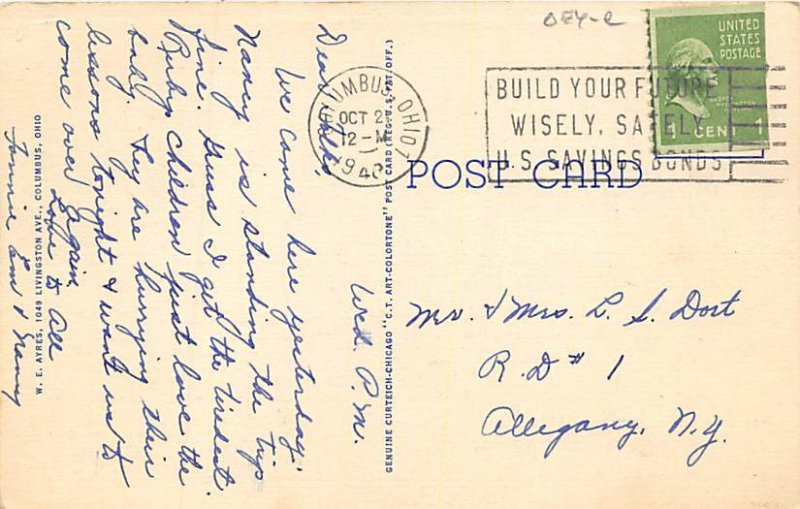 OEY-2
UNITED
STATES
POSTAGE
1 CENT 1
COLUMBUS, OHIO
OCT 2
12-M
1940
BUILD YOUR FUTURE
WISELY, SAFELY
U.S. SAVINGS BONDS
POST CARD
Wed. P.M.
Dear Folks,
We came here yesterday.
Nancy is standing the trip
fine. Guess I get the tiredest.
Ruby children just love the
baby. They are hurrying their
lessons tonight & want us to
come over again.
Love to All
Fannie Em & Nancy
W. E. AYRES, 1049 LIVINGSTON AVE., COLUMBUS, OHIO
GENUINE CURTEICH-CHICAGO "C.T. ART-COLORTONE" POST CARD (REG. U.S. PAT. OFF.)
Mr. & Mrs. L. S. Dort
R.D # 1
Allegany, N.Y.